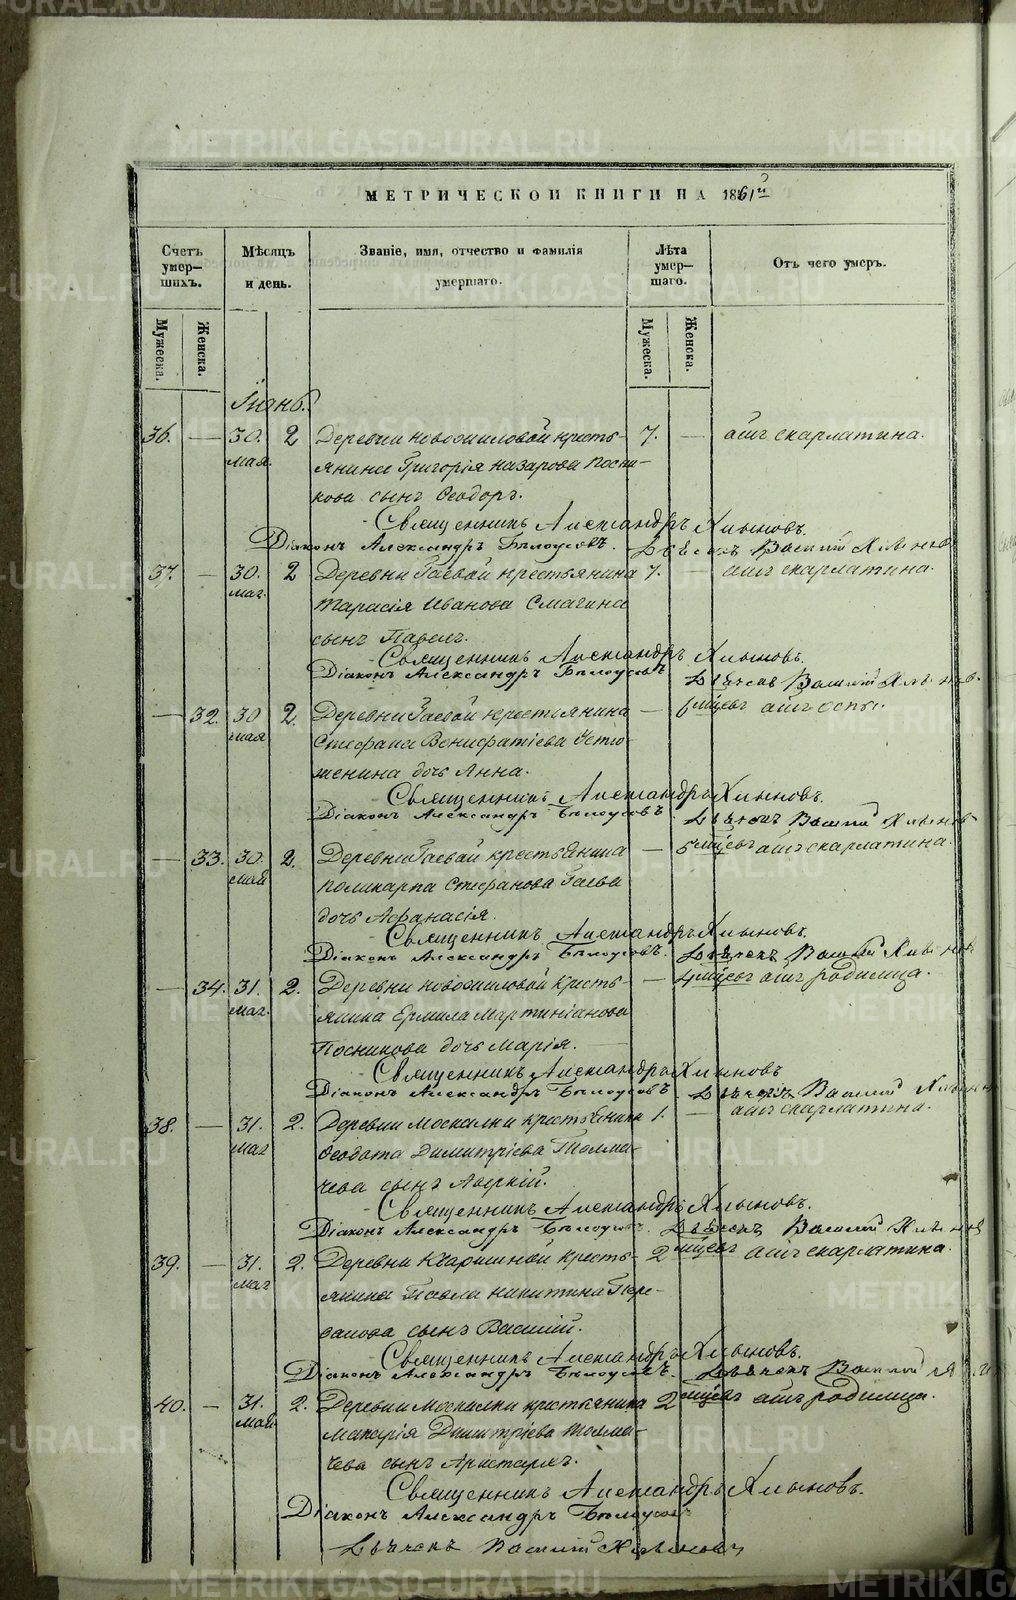 METRIKI.GASO-URAL.RU
МЕТРИЧЕСКОИ КНИГИ НА 1861й
Счетъ умер-шихъ.
Мѣсяцъ и день.
Званіе, имя, отчество и фамилія умершаго.
Лѣта умер-шаго.
Отъ чего умеръ.
Мужеска. Женска. Мужеска. Женска.
Іюнь.
36. — 30. 2 Деревни Новоошловой кресть- 7. — отъ скарлатина.
мая. янина Григорія Назарова Посни-
кова сынъ Ѳеодоръ.
Священникъ Александръ Хлыновъ.
Діаконъ Александръ Бѣлоусовъ. Дьячекъ Василій Хлыновъ
37. — 30. 2 Деревни Гаевой крестьянина 7. — отъ скарлатина.
мая. Тарасія Иванова Смагина
сынъ Павелъ.
Священникъ Александръ Хлыновъ.
Діаконъ Александръ Бѣлоусовъ Дьячекъ Василій Хлыновъ.
— 32. 30 2. Деревни Гаевой крестьянина — 6 мѣсяц. отъ оспы.
мая Стефана Вонифатіева Устю-
женина дочь Анна.
Священникъ Александръ Хлыновъ.
Діаконъ Александръ Бѣлоусовъ. Дьячекъ Василій Хлыновъ
— 33. 30. 2. Деревни Гаевой крестьянина — 5 мѣсяц. отъ скарлатина.
май Поликарпа Стефанова Гаева
дочь Афанасія.
Священникъ Александръ Хлыновъ.
Діаконъ Александръ Бѣлоусовъ. Дьячекъ Василій Хлыновъ
— 34. 31. 2. Деревни Новоошловой кресть- — 4 мѣсяц. отъ родимца.
мая. янина Ермила Мартиніанова
Посникова дочь Марія.
Священникъ Александръ Хлыновъ
Діаконъ Александръ Бѣлоусовъ. Дьячекъ Василій Хлыновъ
38. — 31. 2. Деревни Москалки крестьянина 1. — отъ скарлатина.
мая Ѳеодота Димитріева Толма-
чева сынъ Аверкій.
Священникъ Александръ Хлыновъ.
Діаконъ Александръ Бѣлоусовъ. Дьячекъ Василій Хлыновъ
39. — 31. 2. Деревни Квашниной кресть- 2 мѣсяц. отъ скарлатина.
мая янина Павла Никитина Пере-
валова сынъ Василій.
Священникъ Александръ Хлыновъ.
Діаконъ Александръ Бѣлоусовъ. Дьячекъ Василій
40. — 31. 2. Деревни Москалки крестьянина 2 мѣсяц. отъ родимца.
май Макарія Димитріева Толма-
чева сынъ Аристархъ.
Священникъ Александръ Хлыновъ.
Діаконъ Александръ Бѣлоусовъ
Дьячекъ Василій Хлыновъ